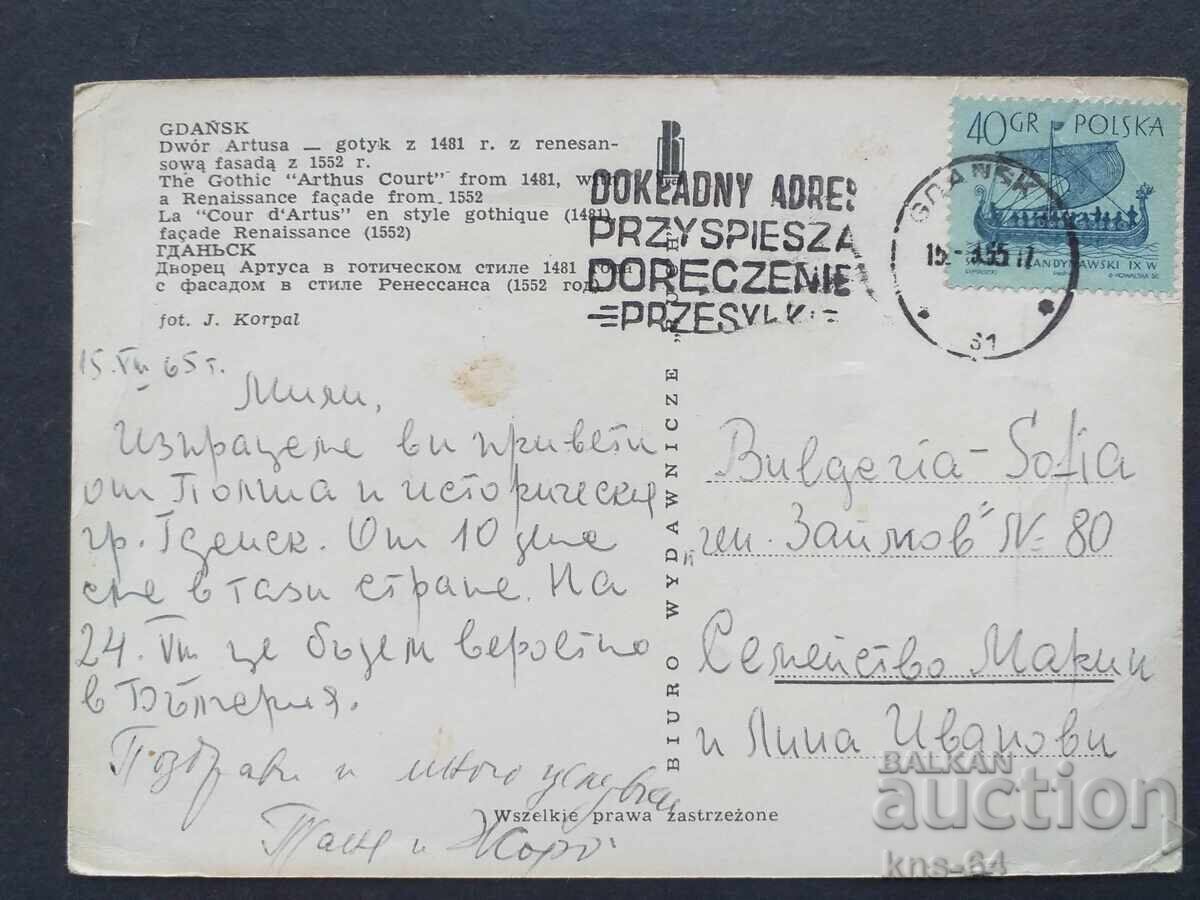 GDAŃSK
Dwór Artusa — gotyk z 1481 r. z renesan-
sową fasadą z 1552 r.
The Gothic "Arthus Court" from 1481, with
a Renaissance façade from 1552
La "Cour d'Artus" en style gothique (1481)
façade Renaissance (1552)
ГДАНЬСК
Дворец Артуса в готическом стиле 1481 года
с фасадом в стиле Ренессанса (1552 год)
fot. J. Korpal
DOKŁADNY ADRES
PRZYSPIESZA
DORĘCZENIE
=PRZESYŁKI=
40GR POLSKA
IX W
GDAŃSK
15.-
61
15.VIII 65 г.
Мили,
Изпращаме ви привети
от Полша и историческия
гр. Гданск. От 10 дни
сме в тази страна. На
24.VIII ще бъдем вероятно
в България.
Поздрави и много целувки
Таня и Жоро
BIURO WYDAWNICZE „RUCH"
Bulgaria-Sofia
"ген. Заимов" № 80
Семейство Марин
и Лина Иванови
Wszelkie prawa zastrzeżone
BALKAN
auction
kns-64